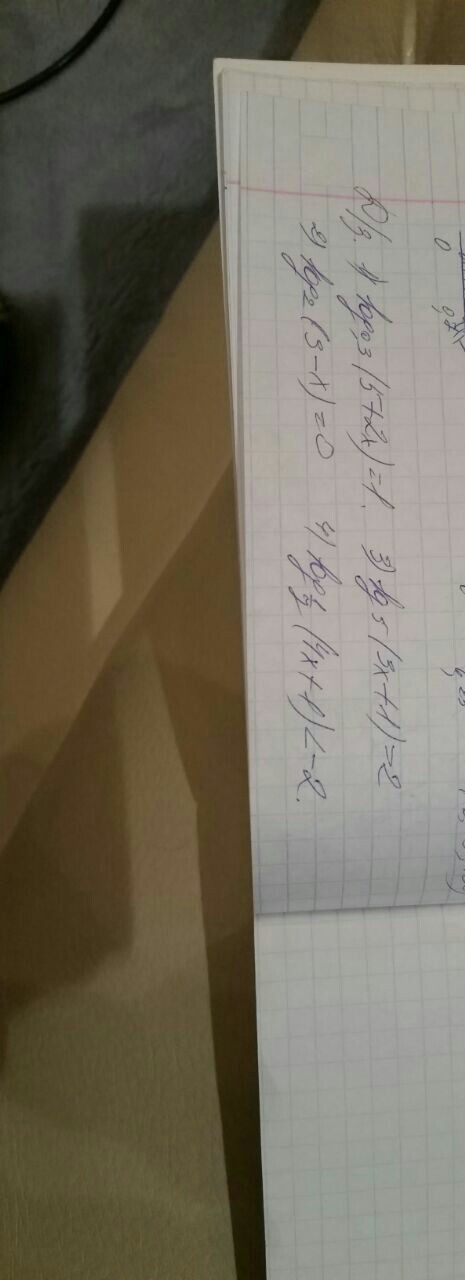 Д/з. 1) log₃ (5+2x)=1. 3) log₅ (3x+1)=2
2) log₂ (3-x)=0 4) log⅓ (4x+1)<-2.